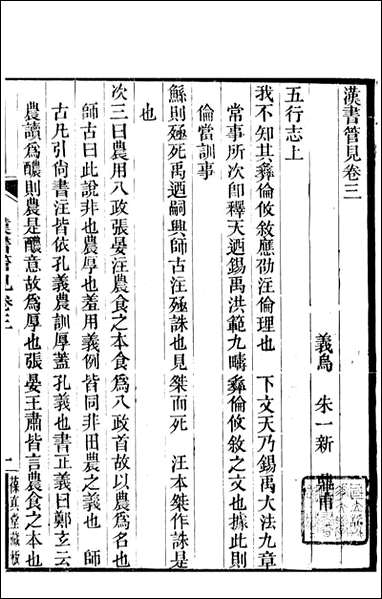 漢書管見卷三
義烏 朱一新 鼎甫
五行志上
我不知其彝倫攸敘應劭注倫理也 下文天乃錫禹大法九章
常事所次即釋天迺錫禹洪範九疇彝倫攸敘之文也據此則
倫當訓事
鯀則殛死禹迺嗣興師古注殛誅也見桀而死 汪本桀作誅是
也
次三曰農用八政張晏注農食之本食爲八政首故以農爲名也
師古曰此說非也農厚也羞用義例皆同非田農之義也 師
古凡引尚書注皆依孔義農訓厚蓋孔義也書正義曰鄭玄云
農讀爲醲則農是醲意故爲厚也張晏王肅皆言農食之本也
漢書管見卷三
一
葆真堂藏板